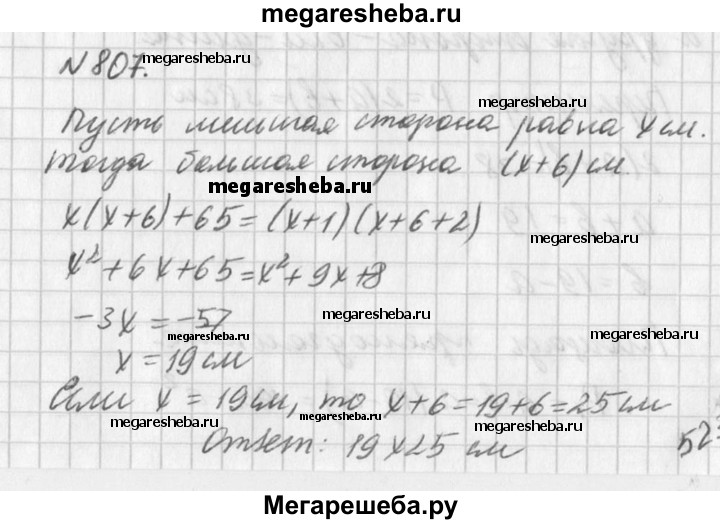 megaresheba.ru
№807.
megaresheba.ru
megaresheba.ru
Пусть меньшая сторона равна x см.
megaresheba.ru
Тогда большая сторона (x+6) см.
megaresheba.ru
x(x+6)+65=(x+1)(x+6+2)
megaresheba.ru
x²+6x+65=x²+9x+8
-3x=-57
megaresheba.ru
megaresheba.ru
x=19 см
Если x=19 см, то x+6=19+6=25 см
megaresheba.ru
megaresheba.ru
Ответ: 19x25 см
megaresheba.ru
52
Мегарешеба.ру